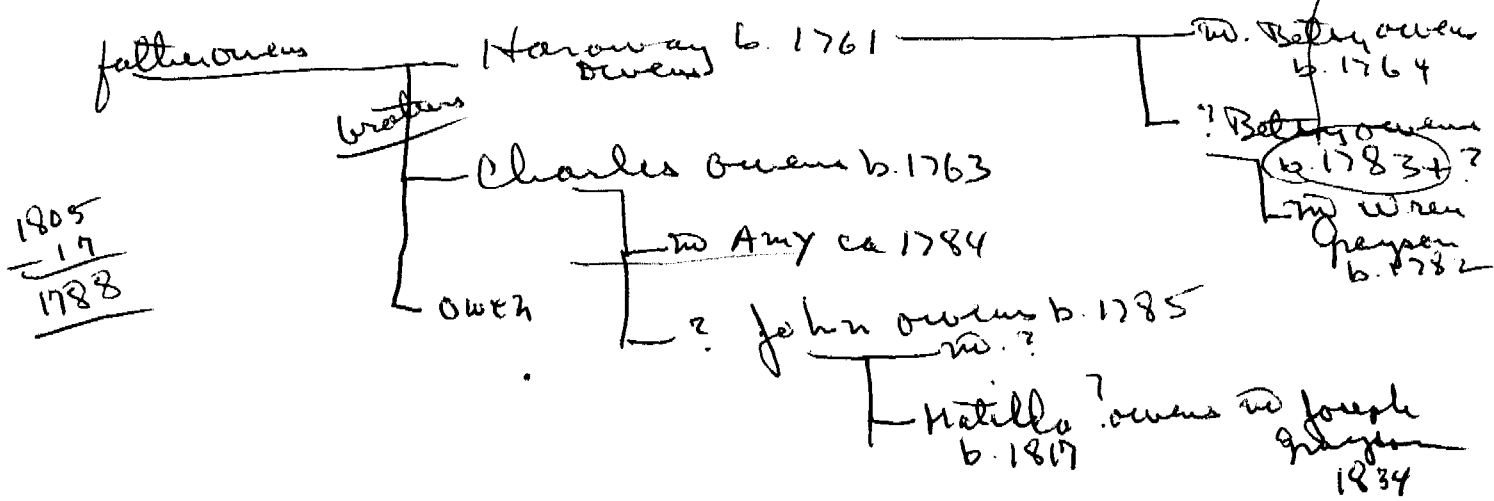 father owens
Haroway b. 1761
owens
m. Betsy owens
b. 1764
brothers
? Betsy owens
b. 1783+ ?
m Wren
Grayson
b. 1782
Charles owens b. 1763
1805
- 17
1788
m Amy ca 1784
owen
? John owens b. 1785
m. ?
Matilda ? owens m Joseph
b. 1817
Grayson
1834